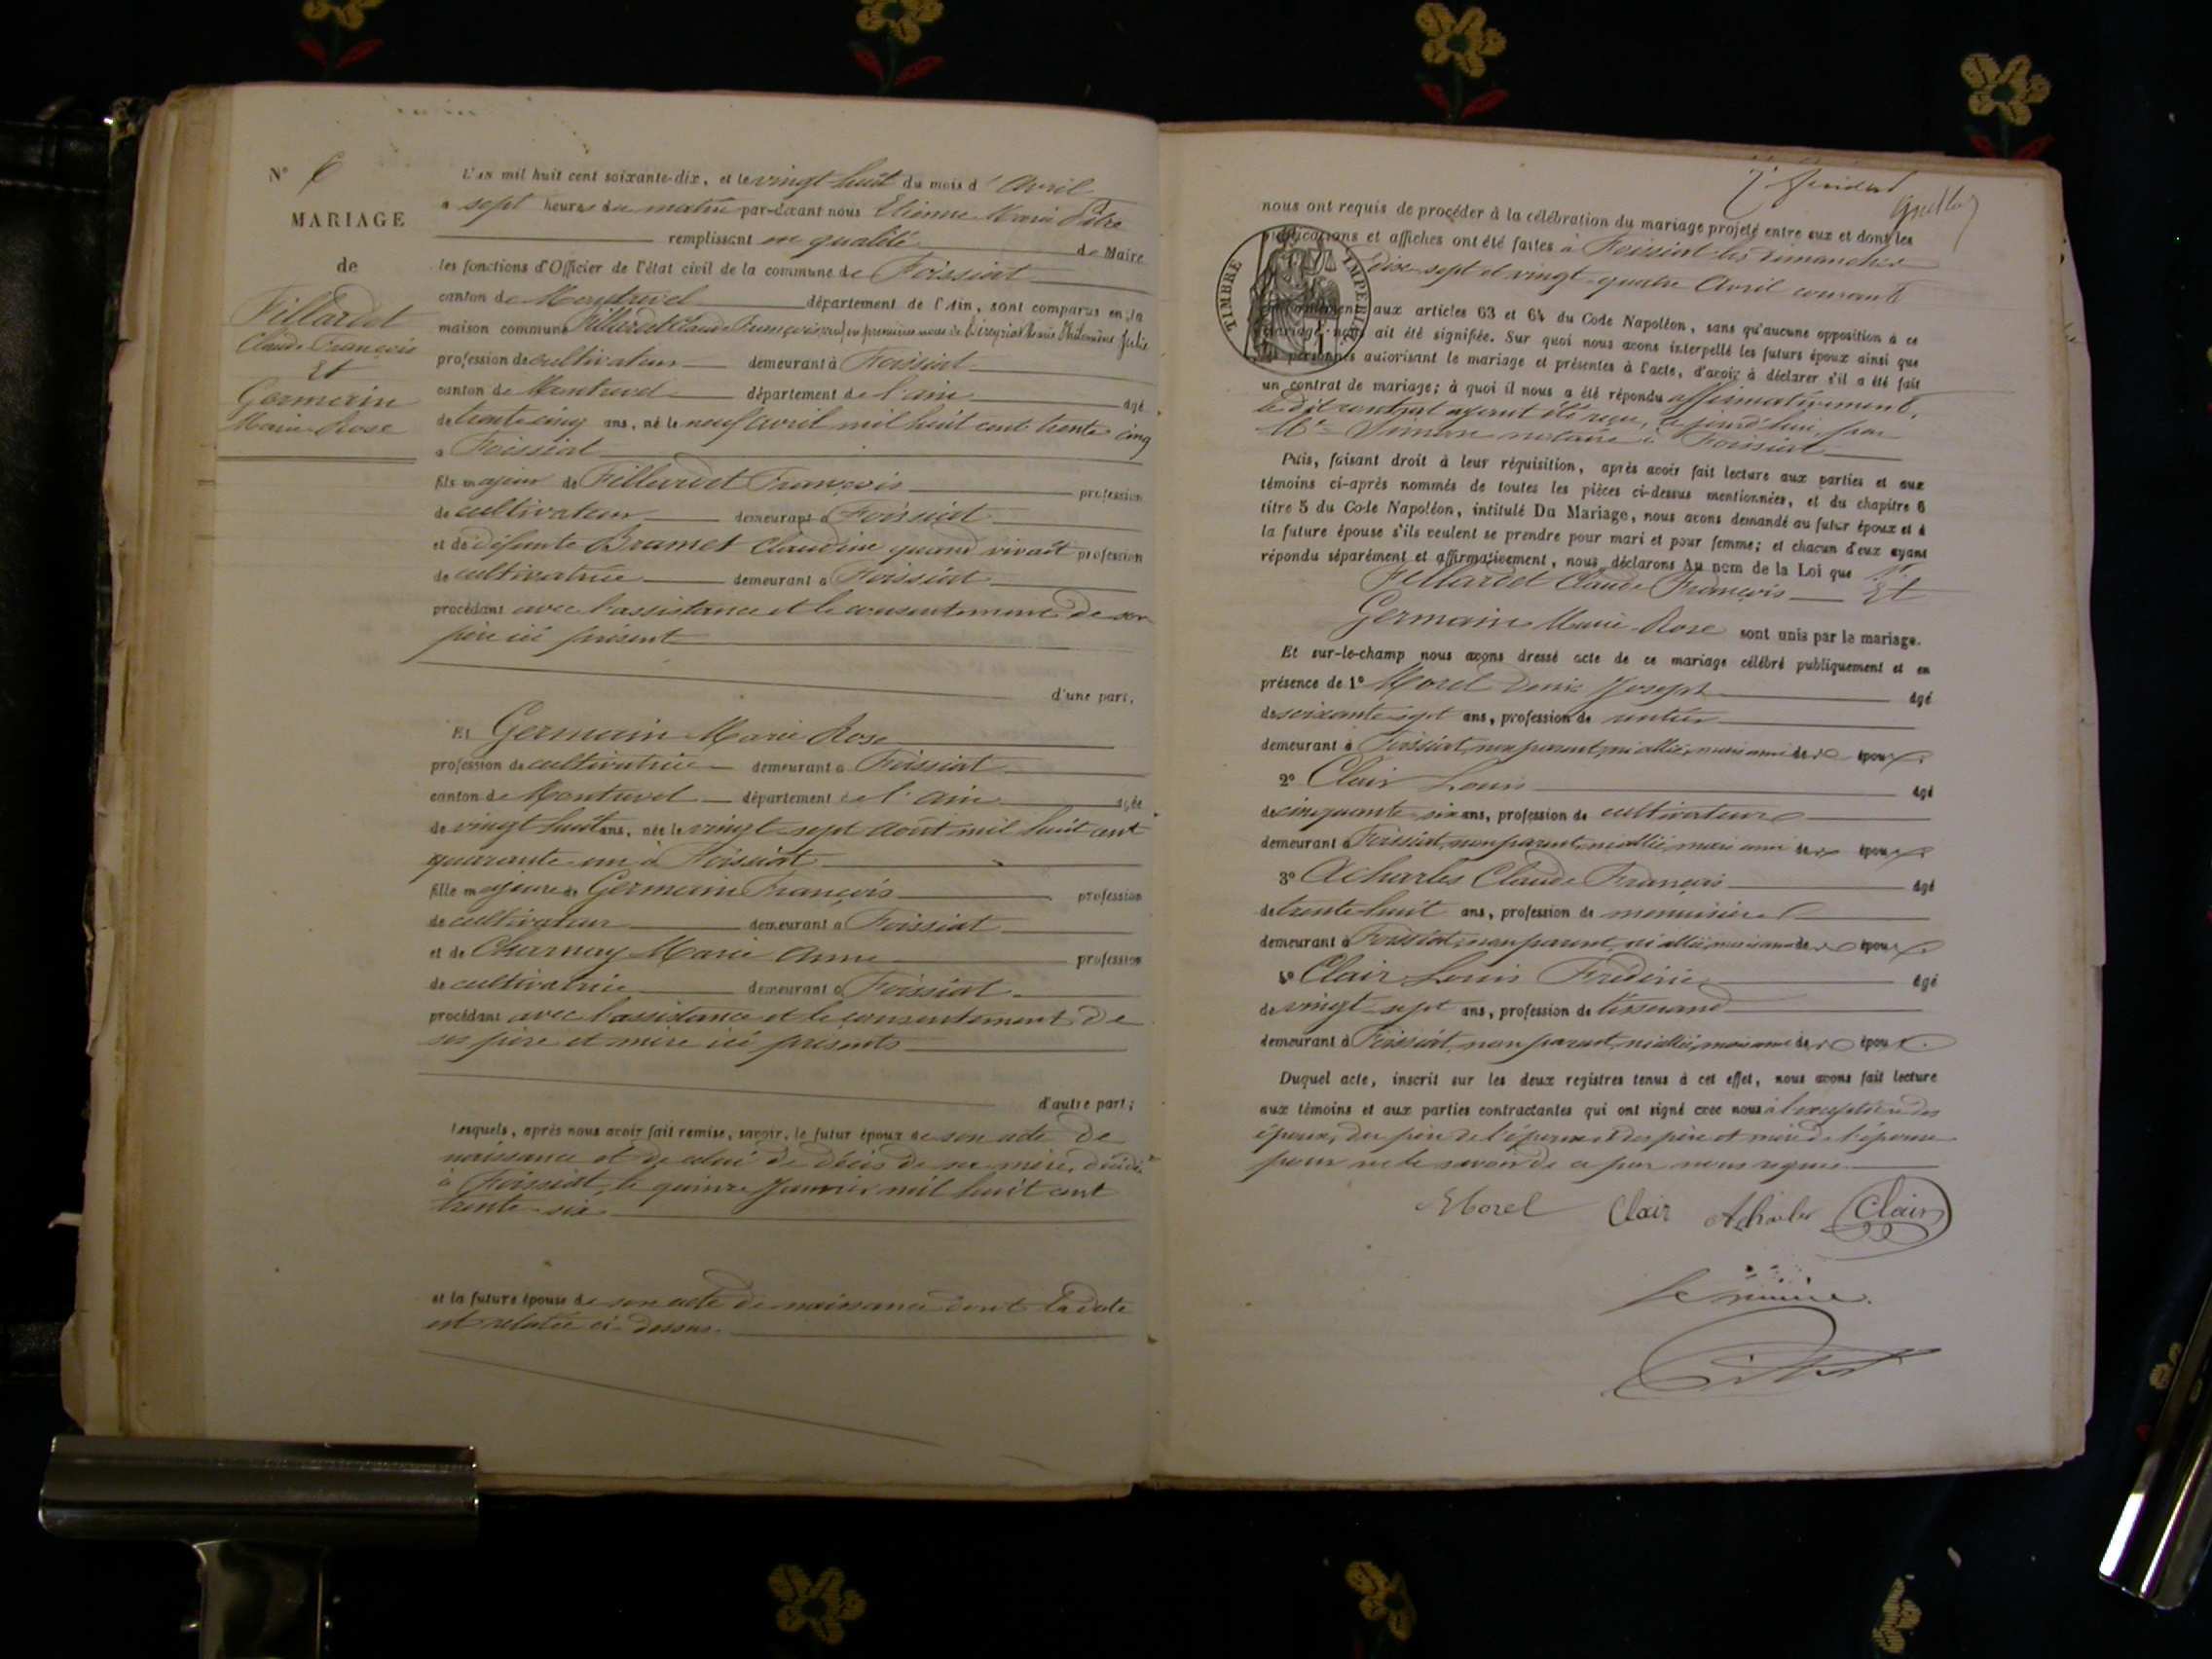 N° 6
MARIAGE
de
Fillardet
Claude François
Et
Germain
Marie Rose
L'an mil huit cent soixante-dix, et le vingt huit du mois d'Avril
a sept heures du matin par-devant nous Etienne Marie Pitre
remplissant en qualité de Maire
les fonctions d'Officier de l'état civil de la commune de Foissiat
canton de Montrevel département de l'Ain, sont comparus en la
maison commune Fillardet Claude François veuf en premières noces de Marie Philomène Julie
profession de cultivateur demeurant à Foissiat
canton de Montrevel département de l'ain âgé
de trente cinq ans, né le neuf avril mil huit cent trente cinq
a Foissiat
fils majeur de Fillardet François profession
de cultivateur demeurant à Foissiat
et de défunte Bramet Claudine quand vivait profession
de cultivatrice demeurant a Foissiat
procédant avec l'assistance et le consentement de son
père ici présent
d'une part,
Et Germain Marie Rose
profession de cultivatrice demeurant a Foissiat
canton de Montrevel département de l'ain agée
de vingt huit ans, née le vingt sept août mil huit cent
quarante un à Foissiat
fille majeure de Germain François profession
de cultivateur demeurant a Foissiat
et de Charnay Marie Anne profession
de cultivatrice demeurant a Foissiat
procédant avec l'assistance et le consentement de
ses père et mère ici présents
d'autre part;
Lesquels, après nous avoir fait remise, savoir, le futur époux de son acte de
naissance et de celui de décès de sa mère, décédée
à Foissiat, le quinze Janvier mil huit cent
trente six
et la future épouse de son acte de naissance dont la date
est relatée ci-dessus
nous ont requis de procéder à la célébration du mariage projeté entre eux et dont les
publications et affiches ont été faites à Foissiat les Dimanches
Dix sept et vingt quatre Avril courant
TIMBRE IMPERIAL
conformément aux articles 63 et 64 du Code Napoléon, sans qu'aucune opposition à ce
mariage nous ait été signifiée. Sur quoi nous avons interpellé les futurs époux ainsi que
les personnes autorisant le mariage et présentes à l'acte, d'avoir à déclarer s'il a été fait
un contrat de mariage; à quoi il nous a été répondu affirmativement,
le dit contrat ayant été reçu, ce jourd'hui, par
Me notaire à Foissiat
Puis, faisant droit à leur réquisition, après avoir fait lecture aux parties et aux
témoins ci-après nommés de toutes les pièces ci-dessus mentionnées, et du chapitre 6
titre 5 du Code Napoléon, intitulé Du Mariage, nous avons demandé au futur époux et à
la future épouse s'ils veulent se prendre pour mari et pour femme; et chacun d'eux ayant
répondu séparément et affirmativement, nous déclarons Au nom de la Loi que
Fillardet Claude François Et
Germain Marie Rose sont unis par le mariage.
Et sur-le-champ nous avons dressé acte de ce mariage célébré publiquement et en
présence de 1° Morel Denis Joseph âgé
de soixante sept ans, profession de rentier
demeurant à Foissiat, non parent, ni allié, mais ami des époux
2° Clair Louis âgé
de cinquante six ans, profession de cultivateur
demeurant à Foissiat, non parent, ni allié, mais ami des époux
3° Acharles Claude François âgé
de trente huit ans, profession de menuisier
demeurant à Foissiat, non parent, ni allié, mais ami des époux
4° Clair Louis Frédéric âgé
de vingt sept ans, profession de tisserand
demeurant à Foissiat, non parent, ni allié, mais ami des époux
Duquel acte, inscrit sur les deux registres tenus à cet effet, nous avons fait lecture
aux témoins et aux parties contractantes qui ont signé avec nous à l'exception des
époux, du père de l'époux et des père et mère de l'épouse
pour ne le savoir de ce par nous requis
Morel Clair Acharles Clair
Le maire
Pitre